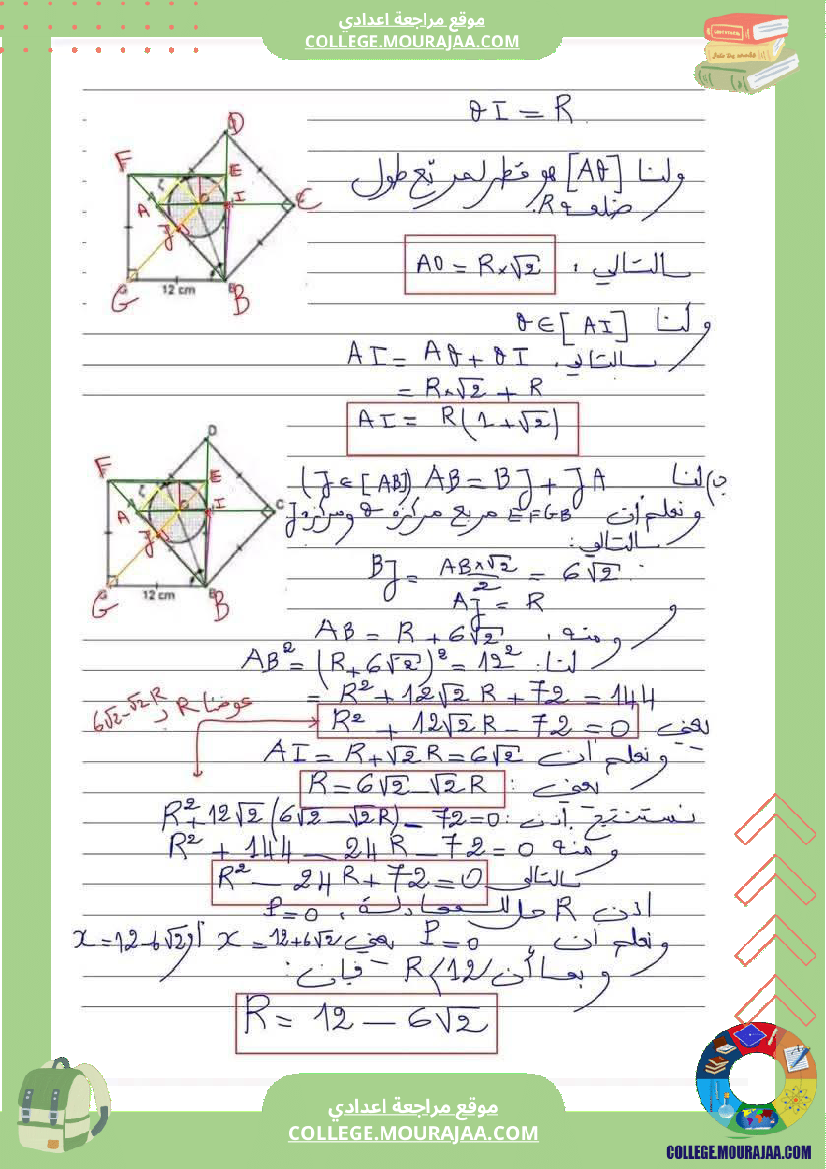 موقع مراجعة اعدادي
COLLEGE.MOURAJAA.COM
OI = R
ولنا [AO] هو قطر لمربع طول
ضلعه R.
بالتالي، AO = R×√2
ولنا O∈[AI]
بالتالي، AI = AO + OI
= R×√2 + R
AI = R(1+√2)
D
F
E
A
O
I
C
J
G
12 cm
B
ب) لنا AB = BJ + JA (J∈[AB])
ونعلم أن EFGB مربع مركزه O ومركزه J
بالتالي:
BJ = AB×√2/2 = 6√2
و AJ = R
ومنه، AB = R + 6√2
لنا: AB² = (R+6√2)² = 12²
= R² + 12√2 R + 72 = 144
يعني R² + 12√2R - 72 = 0
عوضنا R بـ 6√2-√2R
ونعلم أن AI = R+√2R = 6√2
يعني: R = 6√2 - √2R
نستنتج إذن: R²+12√2(6√2-√2R) - 72=0
ومنه R² + 144 - 24R - 72 = 0
بالتالي R² - 24R + 72 = 0
إذن R حل للمعادلة، P=0
ونعلم أن، P=0 يعني x = 12+6√2 أو x=12-6√2
وبما أن R<12 فإن:
R = 12 - 6√2
D
F
E
A
O
I
C
J
G
12 cm
B
موقع مراجعة اعدادي
COLLEGE.MOURAJAA.COM
COLLEGE.MOURAJAA.COM